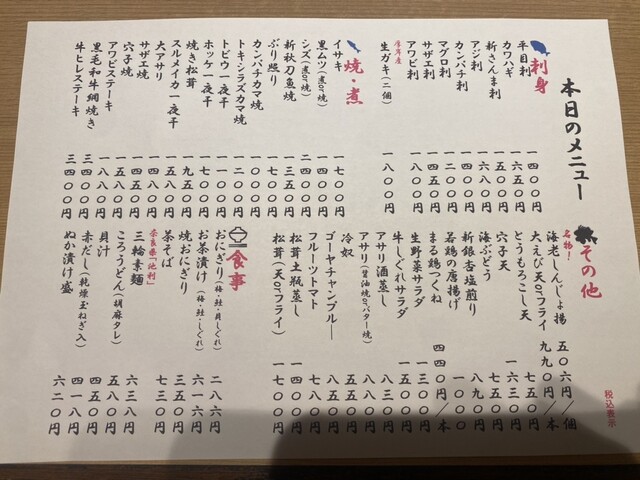 本日のメニュー
刺身
平目刺 一四〇〇円
カワハギ 一六五〇円
新さんま刺 一五〇〇円
アジ刺 六八〇円
カンパチ刺 一一〇〇円
マグロ刺 一二〇〇円
サザエ刺 四五〇円
アワビ刺
厚岸産
生ガキ(二個) 一八〇〇円
焼・煮
イサキ 一七〇〇円
黒ムツ(煮or焼) 一四〇〇円
シズ(煮or焼) 二四〇〇円
新秋刀魚焼 一三五〇円
ぶり照り 一七〇〇円
カンパチカマ焼 一〇〇〇円
トキシラズカマ焼 一二〇〇円
トビウオ一夜干 一一〇〇円
ホッケ一夜干 一七〇〇円
焼き松茸 一九五〇円
スルメイカ一夜干 八五〇円
大アサリ 四八〇円
サザエ焼
穴子焼 一五八〇円
アワビステーキ 一八〇〇円
黒毛和牛網焼き 三四〇〇円
牛ヒレステーキ 三四〇〇円
その他
税込表示
名物!
海老しんじょ揚 五〇六円/個
大えび天orフライ 九九〇円/本
とうもろこし天 七五〇円
穴子天 一六三〇円
海ぶどう 七五〇円
新銀杏塩煎り 八九〇円
若鶏の唐揚げ 一〇〇〇円
まる鶏つくね 四四〇円/本
生野菜サラダ 一三〇〇円
牛しぐれサラダ 一五〇〇円
アサリ酒蒸し 八三〇円
アサリ(醤油焼orバター焼) 八八〇円
冷奴 五五〇円
ゴーヤチャンプルー 八八〇円
フルーツトマト 七八〇円
松茸土瓶蒸し 一四〇〇円
松茸(天orフライ) 一七〇〇円
食事
おにぎり(梅・鮭・貝しぐれ) 二八六円
お茶漬け(梅・鮭・しぐれ) 六一六円
焼おにぎり 三五〇円
茶そば 七三〇円
奈良県「池利」
三輪素麺 六三八円
ころうどん(胡麻タレ) 五八〇円
貝汁 五八〇円
赤だし(乾燥玉ねぎ入) 四一八円
ぬか漬け盛 六二〇円